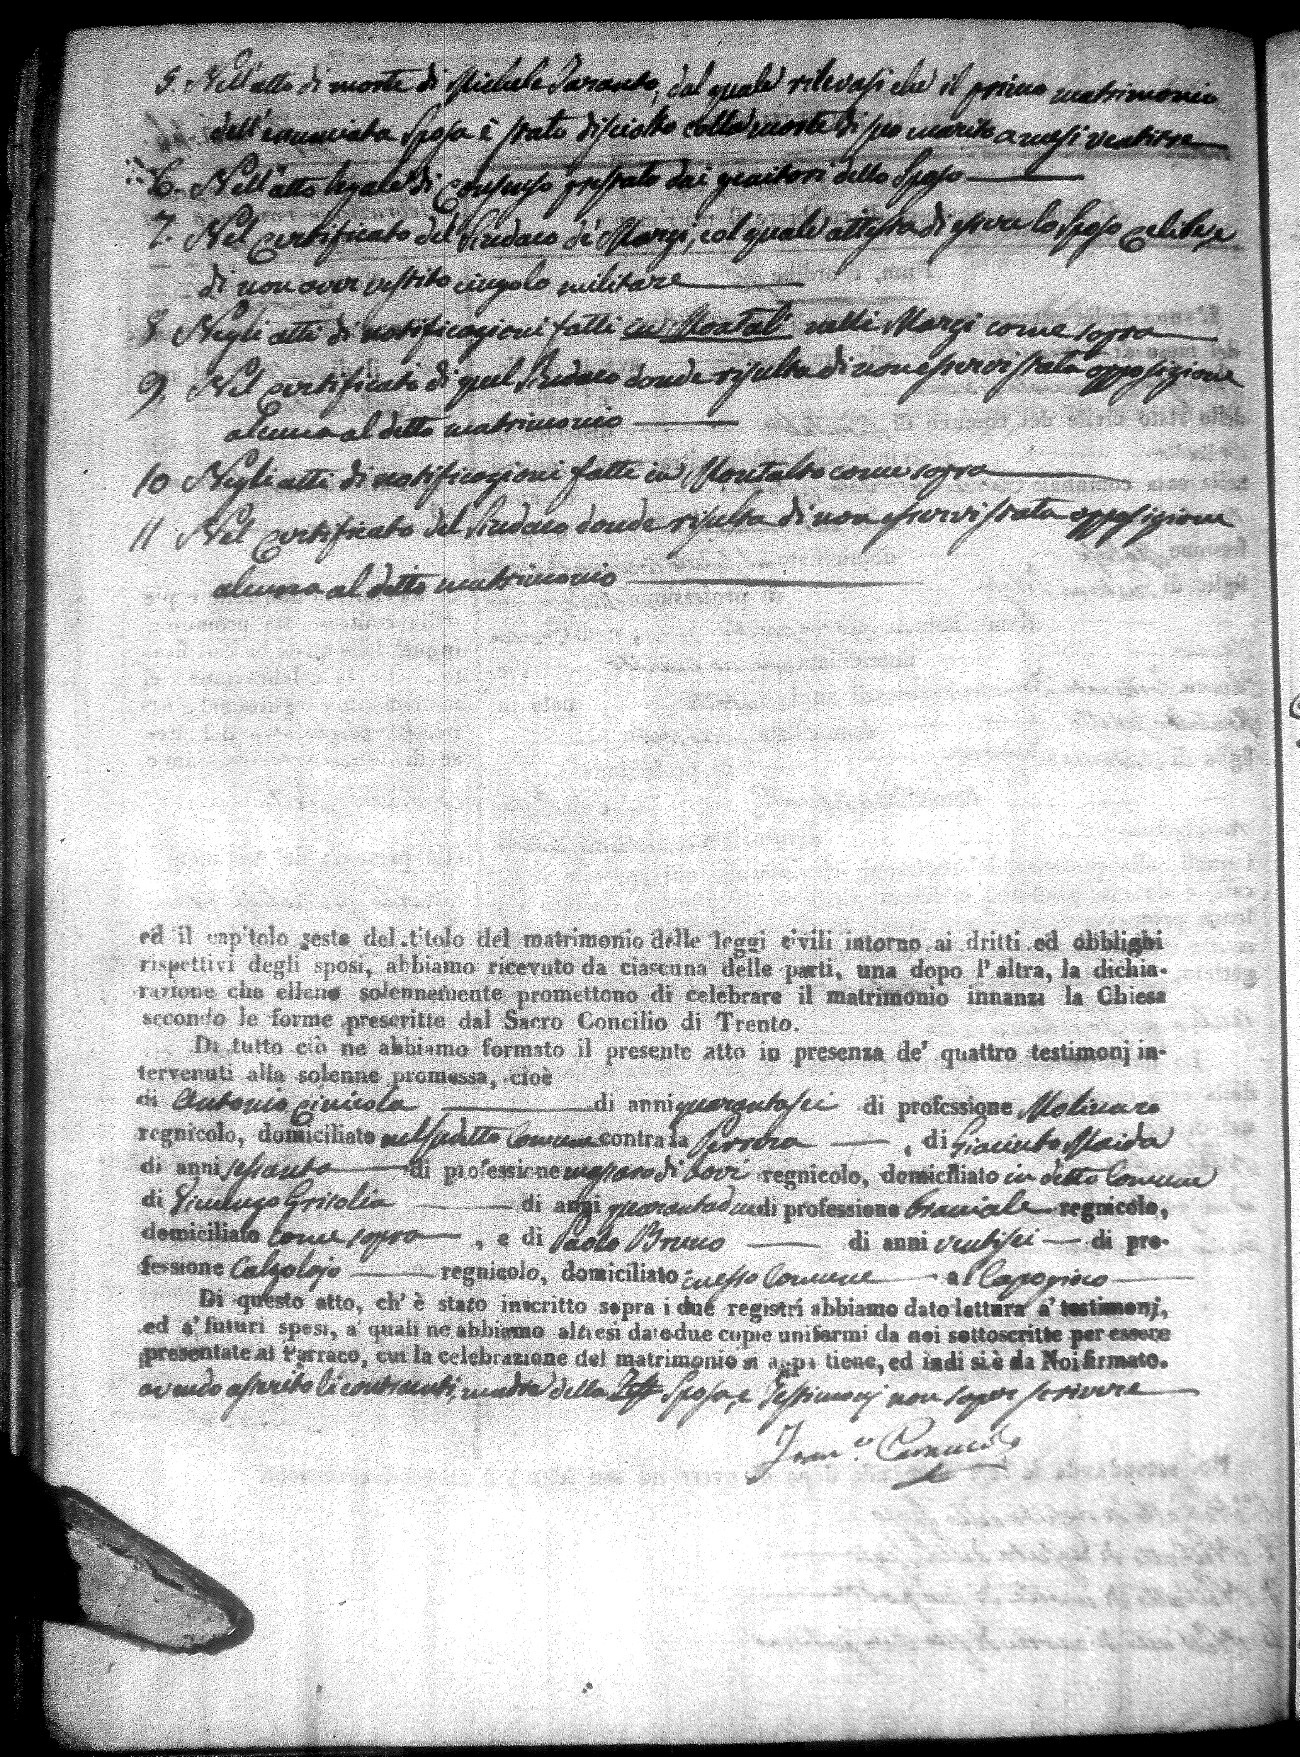 5. Nell'atto di morte di Michele Taranto, dal quale rilevasi che il primo matrimonio
dell'enunciata Sposa è stato disciolto colla morte di suo marito a mesi ventitre
6. Nell'atto legale di Consenso prestato dai genitori dello Sposo
7. Nel certificato del Sindaco di Margi, col quale attesta di essere lo Sposo celibe, e
di non aver vestito cingolo militare
8. Negli atti di notificazioni fatti in Montalto nelli Margi come sopra
9. Nel certificato di quel Sindaco donde risulta di non esservi stata opposizione
alcuna al detto matrimonio
10 Negli atti di notificazioni fatte in Montalto come sopra
11 Nel certificato del Sindaco donde risulta di non esservi stata opposizione
alcuna al detto matrimonio
ed il capitolo sesto del titolo del matrimonio delle leggi civili intorno ai dritti ed obblighi
rispettivi degli sposi, abbiamo ricevuto da ciascuna delle parti, una dopo l'altra, la dichia-
razione che elleno solennemente promettono di celebrare il matrimonio innanzi la Chiesa
secondo le forme prescritte dal Sacro Concilio di Trento.
Di tutto ciò ne abbiamo formato il presente atto in presenza de' quattro testimonj in-
tervenuti alla solenne promessa, cioè
di Antonio di anni quarantasei di professione Molinaro
regnicolo, domiciliato nel sudetto Comune contrada , di Giacinto Maida
di anni sessanta di professione massaro di bovi regnicolo, domiciliato in detto Comune
di Gianluca Grisolia di anni quarantadue di professione bracciale regnicolo,
domiciliato come sopra , e di Paolo Bruno di anni ventisei di pro-
fessione Calzolajo regnicolo, domiciliato in esso Comune al Capogiro
Di questo atto, ch'è stato inscritto sopra i due registri abbiamo dato lettura a' testimonj,
ed a' futuri sposi, a' quali ne abbiamo altresì date due copie uniformi da noi sottoscritte per essere
presentate al Parraco, cui la celebrazione del matrimonio si appartiene, ed indi si è da Noi firmato.
avendo asserito li contraenti, madre della Sposa, e Testimonj non saper scrivere
Fran.co